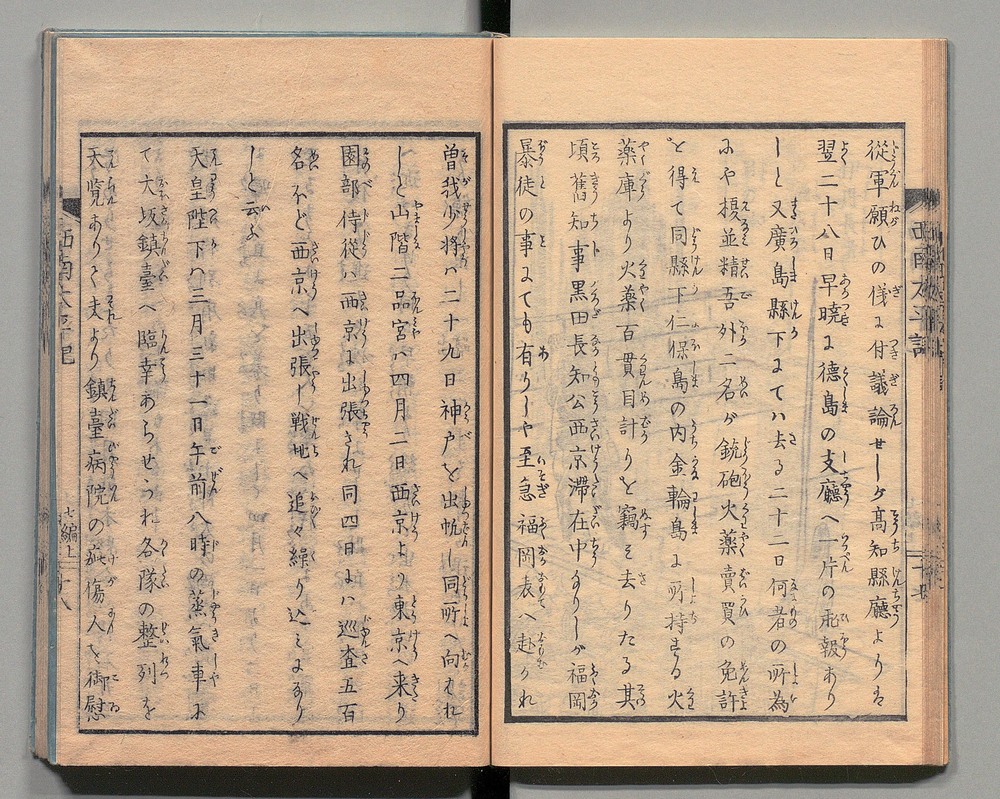 従軍願ひの儀に付議論せしが高知縣廳よりは
翌二十八日早暁に徳島の支廳へ一片の飛報あり
しと又廣島縣下にてハ去る二十二日何者の所為
にや榎並精吾外二名が銃砲火薬賣買の免許
を得て同縣下仁保島の内金輪島に所持する火
薬庫より火薬百貫目計りを竊み去りたる其
頃舊知事黒田長知公西京滞在中なりしが福岡
暴徒の事にても有りしや至急福岡表へ赴かれ
曽我少将ハ二十九日神戸を出帆し同所へ向はれ
しと山階二品宮ハ四月二日西京より東京へ来り
園部侍従ハ西京に出張され同四日にハ巡査五百
名ほど西京へ出張し戦地へ追々繰り込みになり
しと云ふ
天皇陛下ハ三月三十一日午前八時の蒸氣車に
て大坂鎮臺へ臨幸あらせられ各隊の整列を
天覧ありて夫より鎮臺病院の疵傷人を御慰
西南太平記
七編上
十八